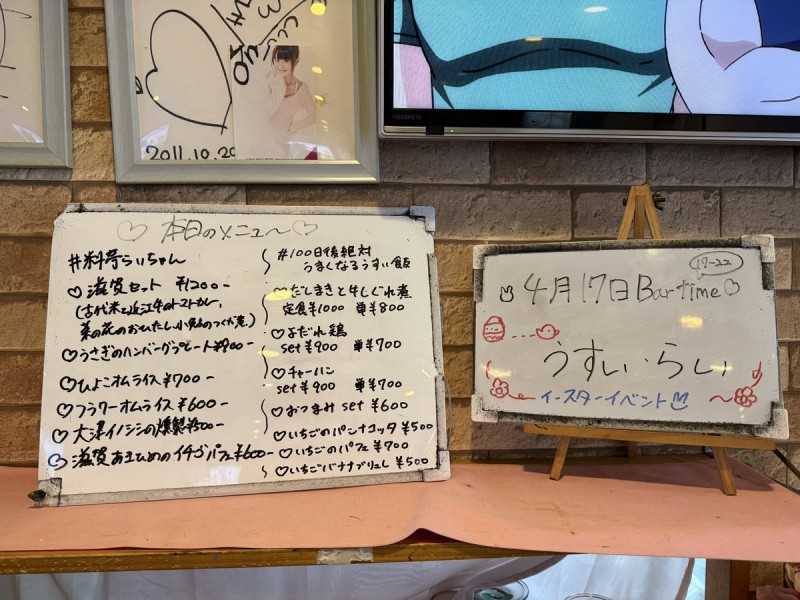 2011.10.20
♡ 本日のメニュー ♡
#料亭らいちゃん
♡ 滋賀セット ¥1200-
(古代米と近江牛のトマトカレー、
菜の花のおひたし、小鮎のつくだ煮)
♡うさぎのハンバーグプレート ¥900-
♡ひよこオムライス ¥700-
♡フラワーオムライス ¥600-
♡大津イノシシの燻製 ¥500-
♡滋賀あまひめのイチゴパフェ ¥600-
#100日後絶対
うまくなるうすい飯
♡だしまきと牛しぐれ煮
定食¥1000 単¥800
♡よだれ鶏
set ¥900 単¥700
♡チャーハン
set ¥900 単¥700
♡おつまみ set ¥600
♡いちごのパンナコッタ ¥500
♡いちごのパフェ ¥700
♡いちごバナナブリュレ ¥500
17-22
4月17日 Bar time♡
うすい らい
イースターイベント